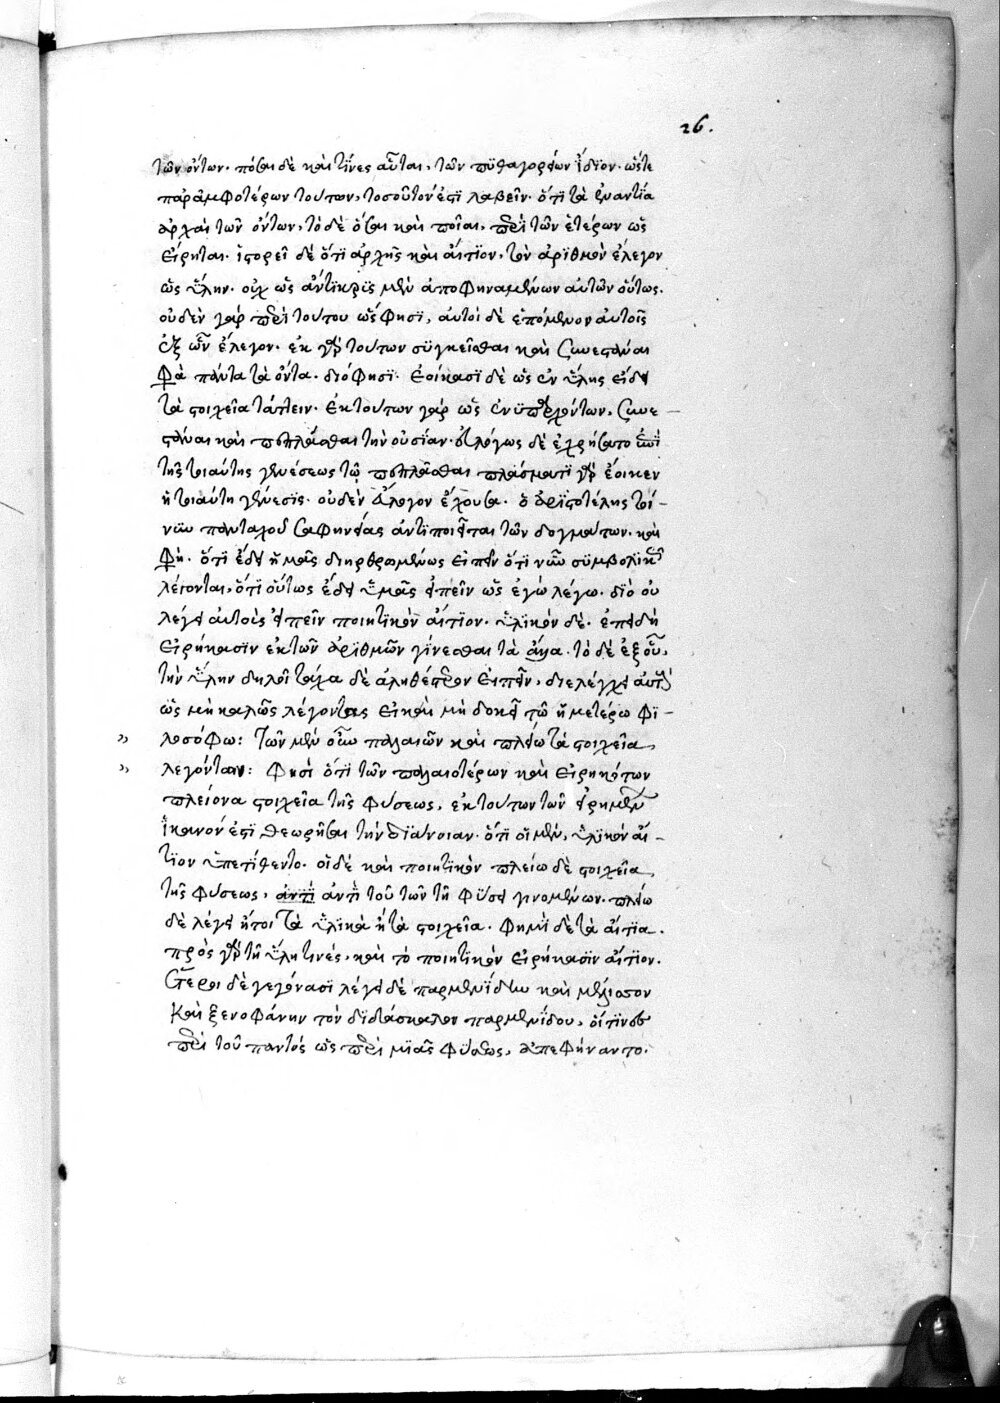 26.
τῶν ὄντων. πόσαι δὲ καὶ τίνες αὗται, τῶν πυθαγορείων ἴδιον. ὥστε
παρ' ἀμφοτέρων τούτων, τοσοῦτον ἔστι λαβεῖν. ὅτι τὰ ἐναντία
ἀρχαὶ τῶν ὄντων, τὸ δὲ ὅσαι καὶ ποῖαι, περὶ τῶν ἑτέρων ὡς
εἴρηται. ἱστορεῖ δὲ ὅτι ἀρχῆς καὶ αἴτιον, τὸν ἀριθμὸν ἔλεγον
ὡς ὕλην. οὐχ ὡς ἄντικρις μὲν ἀποφηναμένων αὐτῶν οὕτως.
οὐδὲν γὰρ περὶ τούτου ὥς φησι, αὐτοὶ δὲ ἑπόμενον αὐτοῖς
ἐξ ὧν ἔλεγον. ἐκ γὰρ τούτων συγκεῖσθαι καὶ συνεστάναι
φὰ πάντα τὰ ὄντα. διό φησι. ἐοίκασι δὲ ὡς ἐν ὕλης εἴδει
τὰ στοιχεῖα τάττειν. ἐκ τούτων γὰρ ὡς ἐνυπαρχόντων, συνε-
στάναι καὶ πεπλάσθαι τὴν οὐσίαν. εὐλόγως δὲ ἐχρήσατο ἐπὶ
τῆς τοιαύτης γενέσεως τῷ πεπλάσθαι πλάσματι γὰρ ἔοικεν
ἡ τοιαύτη γένεσις. οὐδὲν ἄλογον ἔχουσα. ὁ ἀριστοτέλης τοί-
νυν πανταχοῦ σαφηνείας ἀντιποιεῖται τῶν δογμάτων. καὶ
φη. ὅτι ἔδει ἡμᾶς διηρθρωμένως εἰπεῖν ὅτι νῦν συμβολικῶς
λέγονται, ὅτι οὕτως ἔδει ὑμᾶς εἰπεῖν ὡς ἐγὼ λέγω. διὸ οὐ
λέγει αὐτοὺς εἰπεῖν ποιητικὸν αἴτιον. ὑλικὸν δέ. ἐπειδὴ
εἰρήκασιν ἐκ τῶν ἀριθμῶν γίνεσθαι τὰ ἄλλα. τὸ δὲ ἐξ οὗ,
τὴν ὕλην δηλοῖ τάχα δὲ ἀληθέστερον εἰπεῖν, διελέγχει αὐτοὺς
ὡς μὴ καλῶς λέγοντας εἰ καὶ μὴ δοκεῖ τῷ ἡμετέρω φι-
» λοσόφω: Τῶν μὲν οὖν παλαιῶν καὶ πλείω τὰ στοιχεῖα,
» λεγόντων: Φησὶ ὅτι τῶν παλαιοτέρων καὶ εἰρηκότων
πλείονα στοιχεῖα τῆς φύσεως, ἐκ τούτων τῶν εἰρημένων
ἱκανόν ἐστι θεωρῆσαι τὴν διάνοιαν. ὅτι οἱ μὲν, ὑλικὸν αἴ-
τιον ὑπετίθεντο. οἱ δὲ καὶ ποιητικὸν πλείω δὲ στοιχεῖα,
τῆς φύσεως, ἀντὶ ἀντὶ τοῦ τῶν τῇ φύσει γινομένων. πλείω
δὲ λέγει ἤτοι τὰ ὑλικὰ ἢ τὰ στοιχεῖα. φημὶ δὲ τὰ αἴτια.
πρὸς γὰρ τῇ ὕλη τινές, καὶ τὸ ποιητικὸν εἰρήκασιν αἴτιον.
ἕτεροι δὲ γεγόνασι λέγει δὲ παρμενίδην καὶ μέλισσον
καὶ ξενοφάνην τὸν διδάσκαλον παρμενίδου, οἵτινες
περὶ τοῦ παντός ὡς περὶ μιᾶς φύσεως, ἀπεφήναντο.